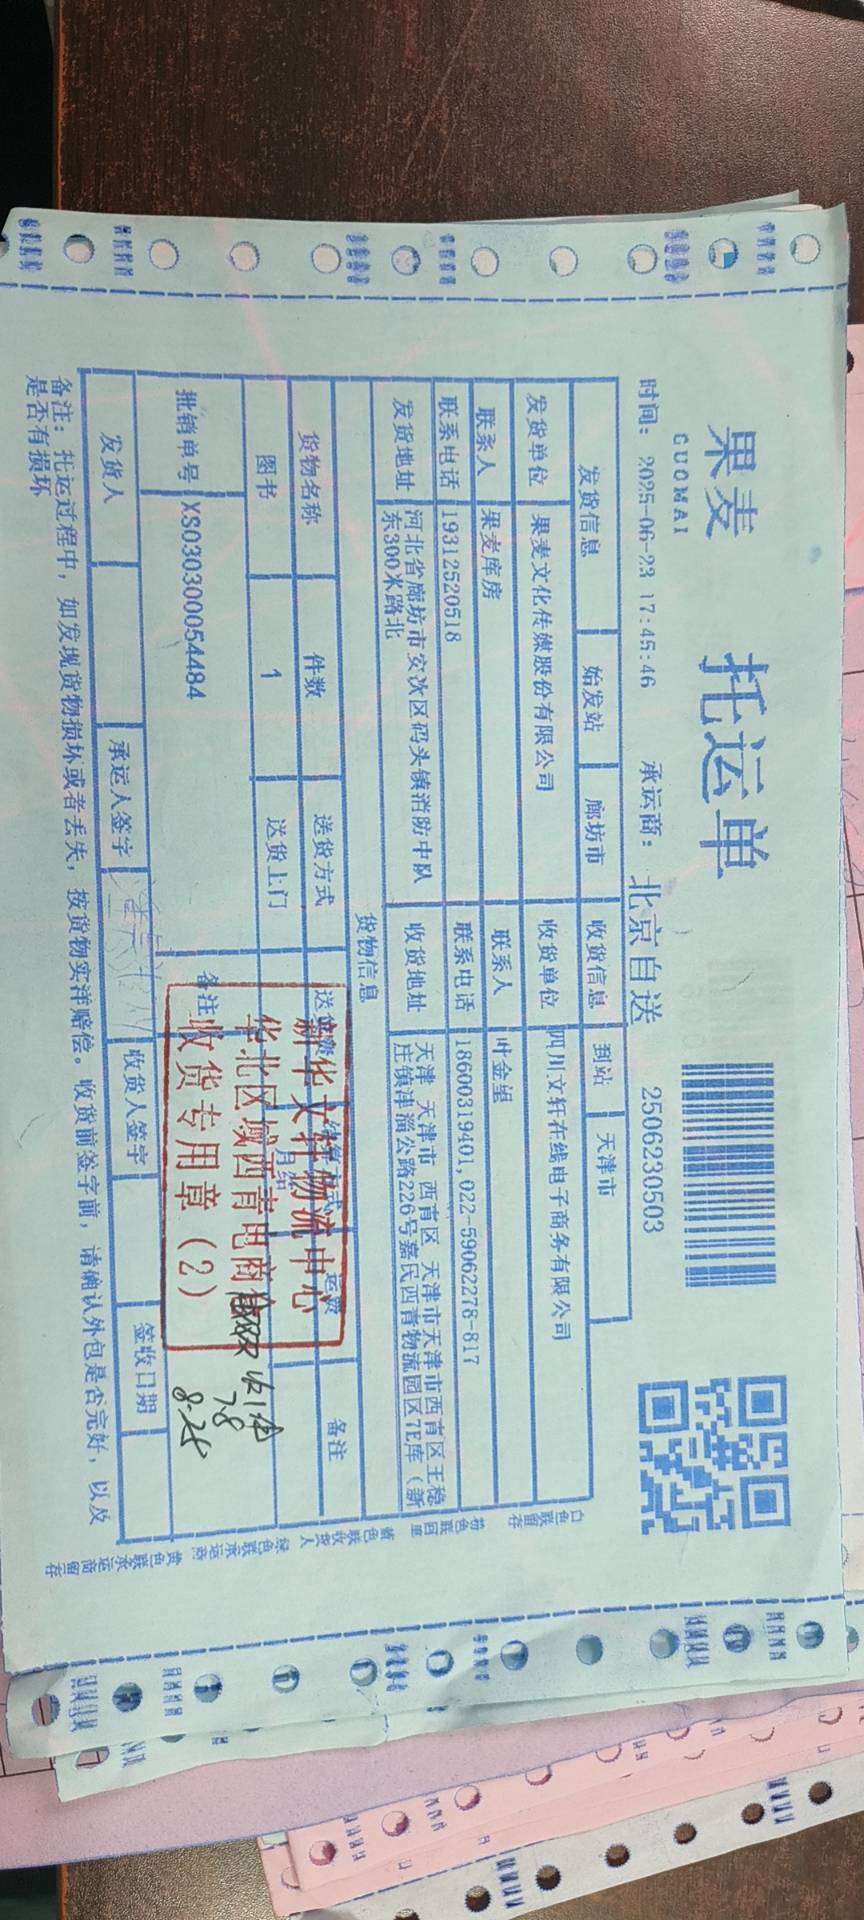 果麦 托运单
GUOMAI
时间: 2025-06-23 17:45:46 承运商: 北京自送 2506230503
发货信息 始发站 廊坊市 收货信息 到站 天津市
发货单位 果麦文化传媒股份有限公司 收货单位 四川文轩在线电子商务有限公司
联系人 果麦库房 联系人 叶金望
联系电话 19312520518 联系电话 18600319401,022-59062278-817
发货地址 河北省廊坊市安次区码头镇消防中队东300米路北 收货地址 天津 天津市 西青区 天津市天津市西青区王稳庄镇津淄公路226号嘉民西青物流园区7E库(新
货物信息
货物名称 件数 送货方式 运费 备注
图书 1 送货上门 月结
批销单号 XS030300054484 备注
新华文轩物流中心
华北区域西青电商仓
收货专用章(2)
收1件
7.8
8-25
发货人 承运人签字 收货人签字 签收日期
备注: 托运过程中, 如发现货物损坏或者丢失, 按货物实洋赔偿。收货前签字前, 请确认外包是否完好, 以及
是否有损坏
白色联留存 粉色联回单 蓝色联收货人 绿色联承运商 黄色联承运商留存